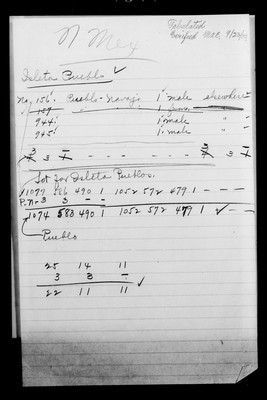 N Mex
Tabulated
Verified 9/20
Isleta Pueblo ✓
No. 156. Pueblo - Navajo 1 male elsewhere
944 1 male "
945 1 male "
3 - - - - - - 3
Tot for Isleta Pueblos.
1077 586 490 1 1052 572 479 1 - - -
P.No 3 3 - -
1074 583 490 1 1052 572 479 1 ✓ - -
Pueblo
25 14 11
3 3 -
22 11 11 ✓